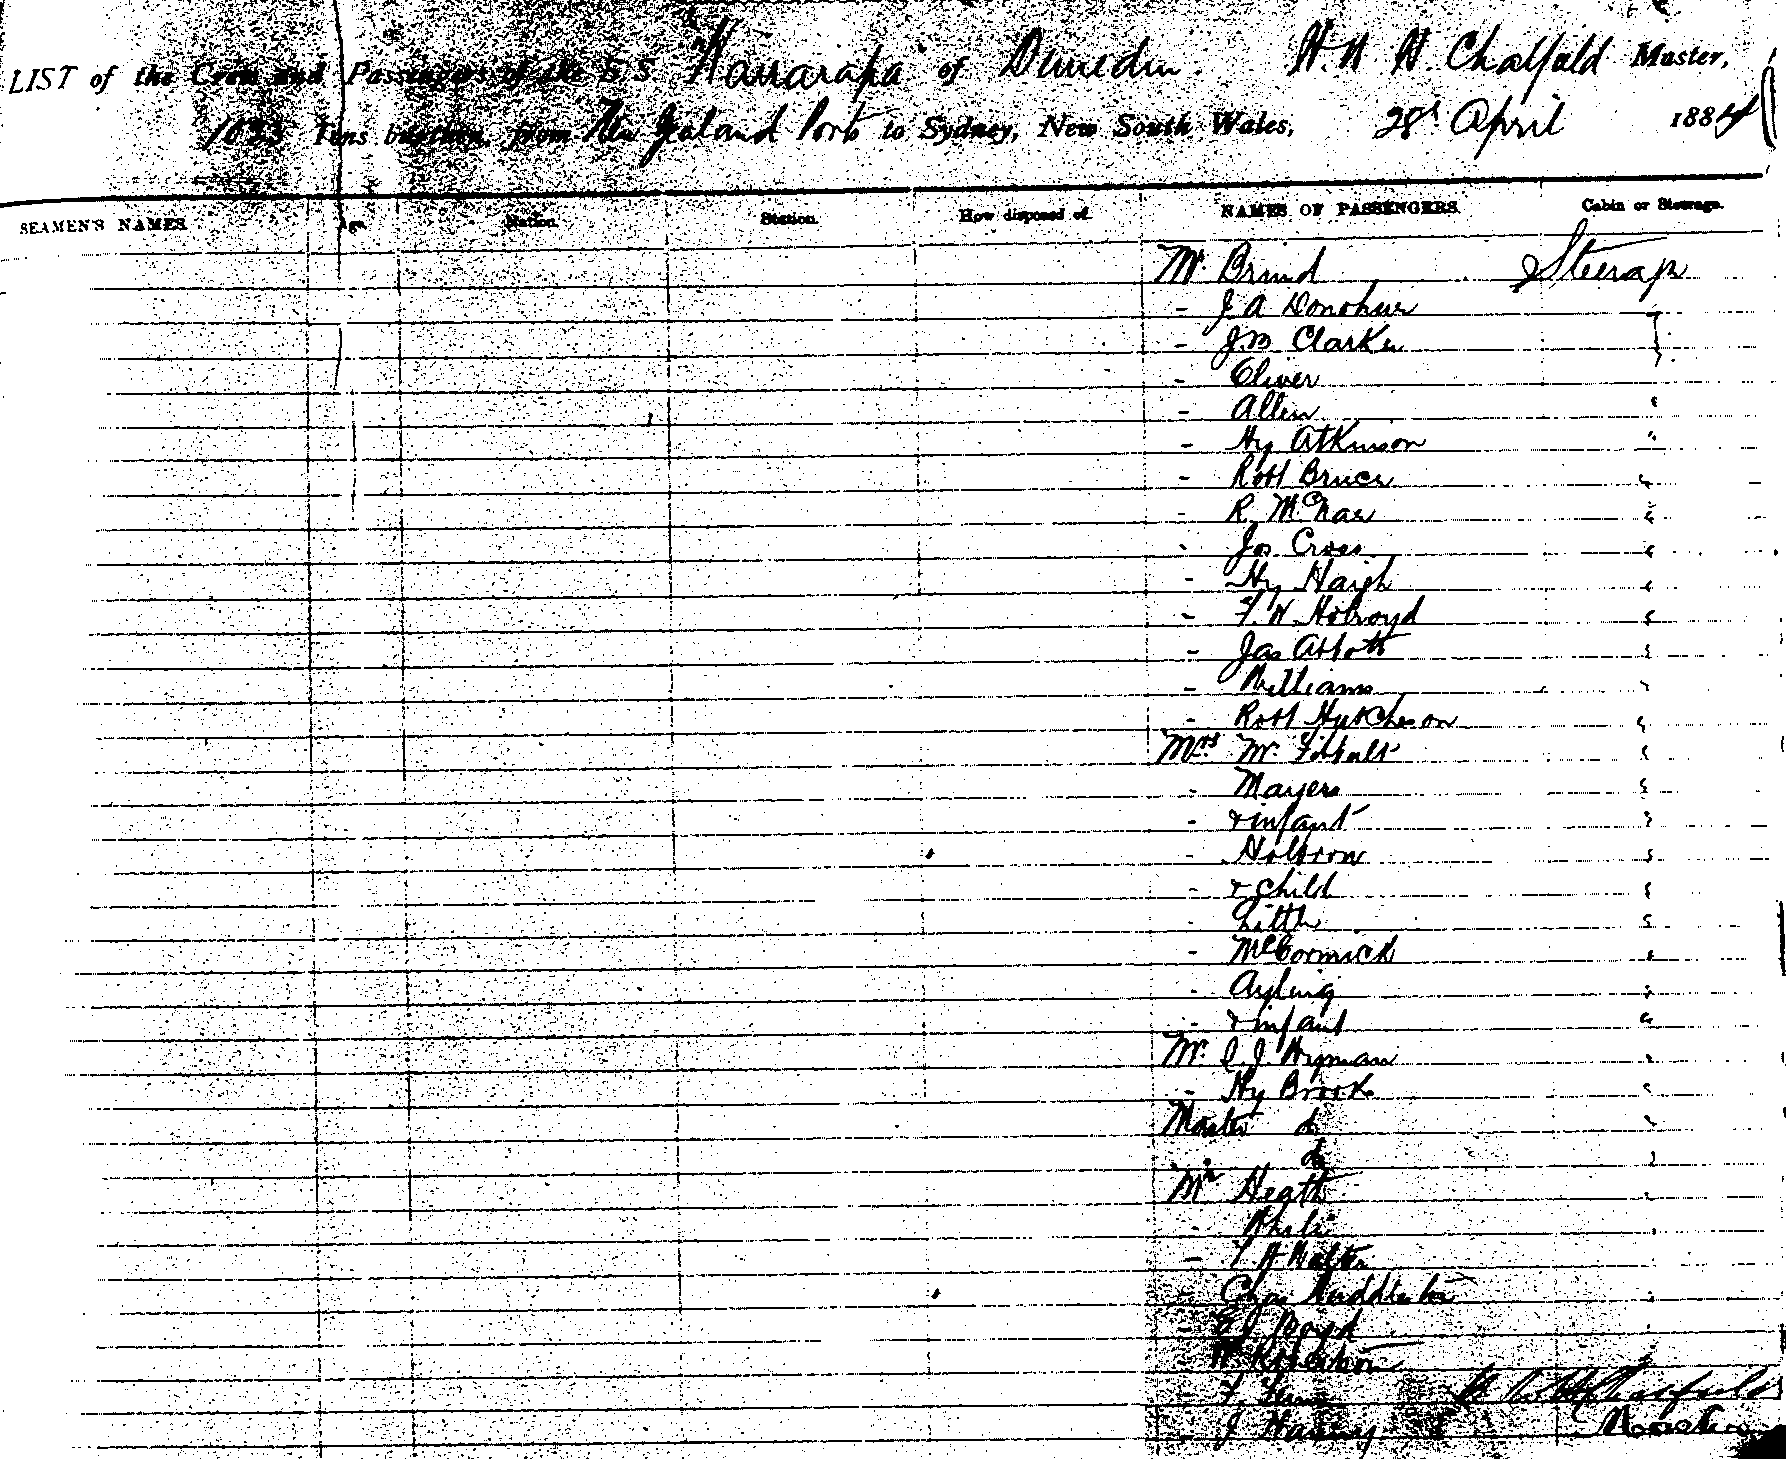 LIST of the Crew and Passengers of the S.S. "Wairarapa" of Dunedin. H. W. H. Chatfield Master,
1023 Tons burthen, from New Zealand Ports to Sydney, New South Wales, 28th April 1884
SEAMEN'S NAMES. Age. Nation. Station. How disposed of. NAMES OF PASSENGERS. Cabin or Steerage.
Mr Brind Steerage
- J. A Donohue "
- J. B Clarke "
- Oliver
- Allen "
- Hy Atkinson "
- Robt Bruce "
- R. McRae "
- Jos. Cross "
- Hy Haigh "
- F. W. Holroyd "
- Jas Abbott "
- Williams "
- Robt Hutcheson "
Mrs "
- Mayers "
- & infant "
- "
- & child "
- Little "
- McCormick "
- Ayling "
- & infant "
Mr. J. Hyman "
- Hy Brook "
Master do "
do "
Mr Heath "
- "
- "
- Chas "
- E J. Boyd "
- W. Robertson
- F.
- J. Chatfield
Master